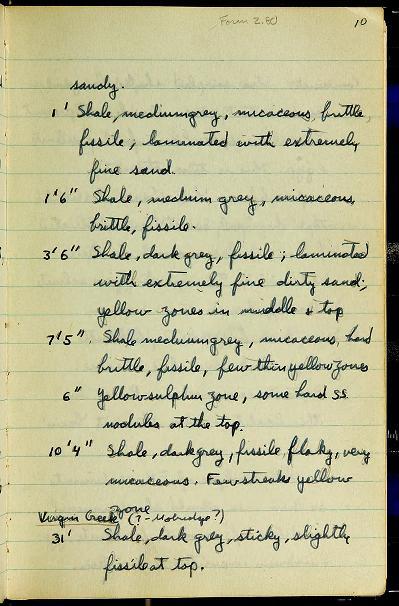 Form 2.80
10
sandy.
1' Shale, medium grey, micaceous, brittle,
fissile; laminated with extremely
fine sand.
1'6" Shale, medium grey, micaceous,
brittle, fissile.
3'6" Shale, dark grey, fissile; laminated
with extremely fine dirty sand;
yellow zones in middle & top
7'5". Shale medium grey, micaceous, hard
brittle, fissile, few thin yellow zones
6" Yellow sulphur zone, some hard ss.
nodules at the top.
10'4" Shale, dark grey, fissile, flaky, very
micaceous. Few streaks yellow
zone
Virgin Creek (?-Mobridge?)
31' Shale, dark grey, sticky, slightly
fissile at top.